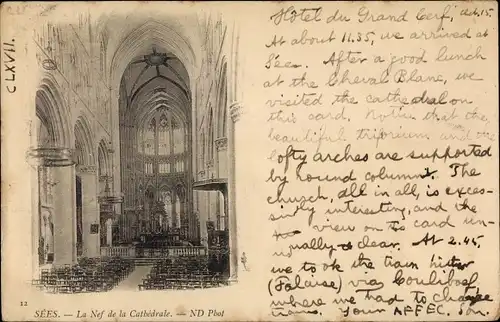 CLXVII.
Hôtel du Grand Cerf, Oct. 15
At about 11.35, we arrived at
Sées. After a good lunch
at the Cheval Blanc, we
visited the cathedral on
this card. Notice that the
beautiful triforium and
lofty arches are supported
by round columns. The
church, all in all, is exces-
sively interesting, and the
view on to card un-
usually clear. At 2.45,
we to ok the train hither
(Falaise) via Couliboeuf
where we had to change
trains. Your AFFEC. Son.
12 SÉES. — La Nef de la Cathédrale. — ND Phot